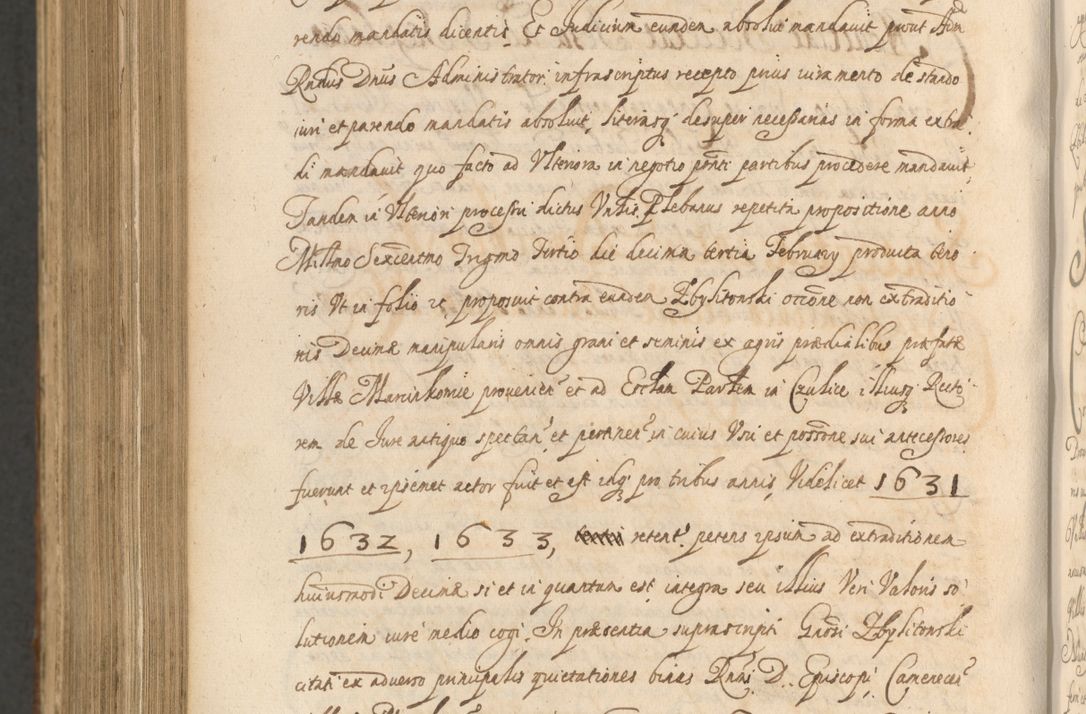 rendo mandatis dicentis, Et Judicium eundem absolvi mandavit prout Adm
Rndus Dnus Administrator infrascriptus recepto prius iuramento de stando
iuri et parendo mandatis absolvit, literasq desuper necessarias in forma extra
di mandavit quo facto ad Ulteriora in negotio pnti partibus procedere mandavit,
Tandem in Ulteriori processu dictus Vnblis Plebanus repetita propositione anno
Millmo Sexcentmo Trigmo Tertio die decima tertia February producta teno
ris Ut in folio rc proposuit contra eundem Zbylitowski occone non extraditio
nis Decimæ manipularis omnis grani et seminis ex agris prædialibus præfatæ
Villæ Marcinkowice provenien et ad Ecclam Parlem in Czulice illiusq Recto
rem de Jure antiquo spectan et pertinen in cuius Usu et possone sui antecessores
fuerunt et ipsemet actor fuit et est idq pro tribus annis, Videlicet 1631
1632, 1633, retent petens ipsum ad extraditionem
huiusmodi Decimæ si et in quantum est integra seu illius Veri Valoris so
lutionem iure medio cogi, In præsentia suprascripti Gnosi Zbylitowski
citati ex adverso principalis quietationes binas Rndi D. Episcopi Camenecen